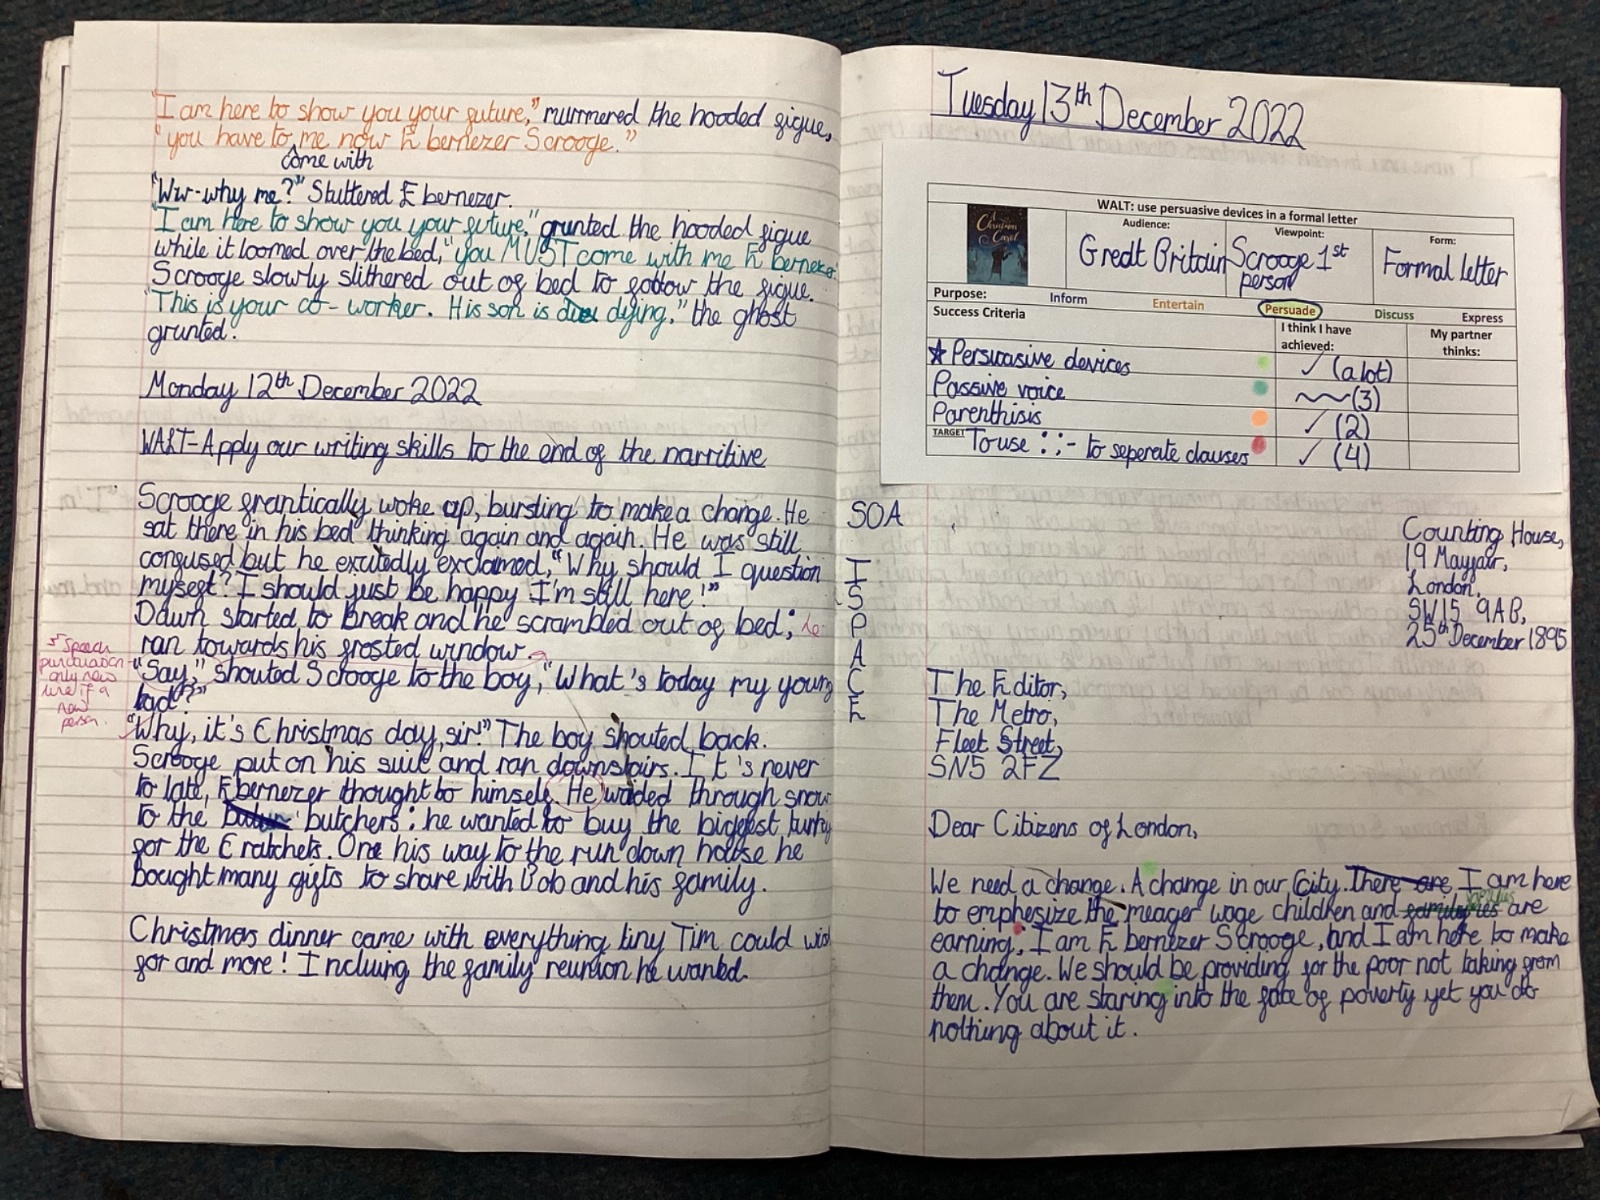 "I am here to show you your future," murmered the hooded figue,
"you have to me now Ebernezer Scrooge."
come with
"Ww-why me?" Stuttered Ebernezer.
"I am here to show you your future," grunted the hooded figue
while it loomed over the bed, "you MUST come with me Ebernezer.
Scrooge slowly slithered out of bed to follow the figue.
"This is your co-worker. His son is dying," the ghost
grunted.
Monday 12th December 2022
WALT-Apply our writing skills to the end of the narritive
Scrooge frantically woke up, bursting to make a change. He
sat there in his bed thinking again and again. He was still
confused but he excitedly exclaimed, "Why should I question
myself? I should just be happy I'm still here!"
Dawn started to break and he scrambled out of bed; he
ran towards his frosted window.
"Say," shouted Scrooge to the boy, "What's today my young
lad?"
"Why, it's Christmas day, sir!" The boy shouted back.
Scrooge put on his suit and ran downstairs. It's never
to late, Ebernezer thought to himself. He waded through snow
to the butchers: he wanted to buy the biggest turky
for the Cratchets. One his way to the run down house he
bought many gifts to share with Bob and his family.
Christmas dinner came with everything tiny Tim could wish
for and more! Incluing the family reunion he wanted.
Speech
punctuation
only new
line if a
new
person.
Tuesday 13th December 2022
WALT: use persuasive devices in a formal letter
A Christmas Carol
Audience:
Great Britain
Viewpoint:
Scrooge 1st
person
Form:
Formal letter
Purpose: Inform Entertain Persuade Discuss Express
Success Criteria
I think I have
achieved:
My partner
thinks:
★ Persuasive devices ✓ (a lot)
Passive voice (3)
Parenthisis ✓ (2)
TARGET To use : ; - to seperate clauses ✓ (4)
SOA
I
S
P
A
C
E
Counting House,
19 Mayfair,
London,
SW15 9AB,
25th December 1895
The Editor,
The Metro,
Fleet Street,
SN5 2FZ
Dear Citizens of London,
We need a change. A change in our City. There are I am here
to emphesize the meager wage children and families are
earning; I am Ebernezer Scrooge, and I am here to make
a change. We should be providing for the poor not taking from
them. You are staring into the face of poverty yet you do
nothing about it.